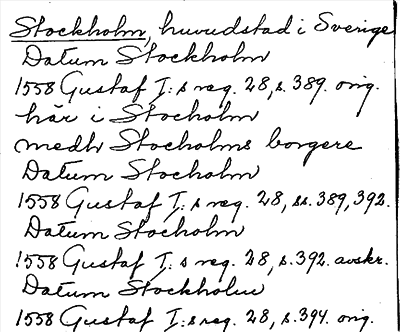 Stockholm, huvudstad i Sverige
Datum Stockholm
1558 Gustaf I:s reg. 28, s. 389. orig.
här i Stocholm
medh Stocholms borgere
Datum Stocholm
1558 Gustaf I:s reg. 28, ss. 389, 392.
Datum Stocholm
1558 Gustaf I:s reg. 28, s. 392. avskr.
Datum Stockholm
1558 Gustaf I:s reg. 28, s. 394. orig.